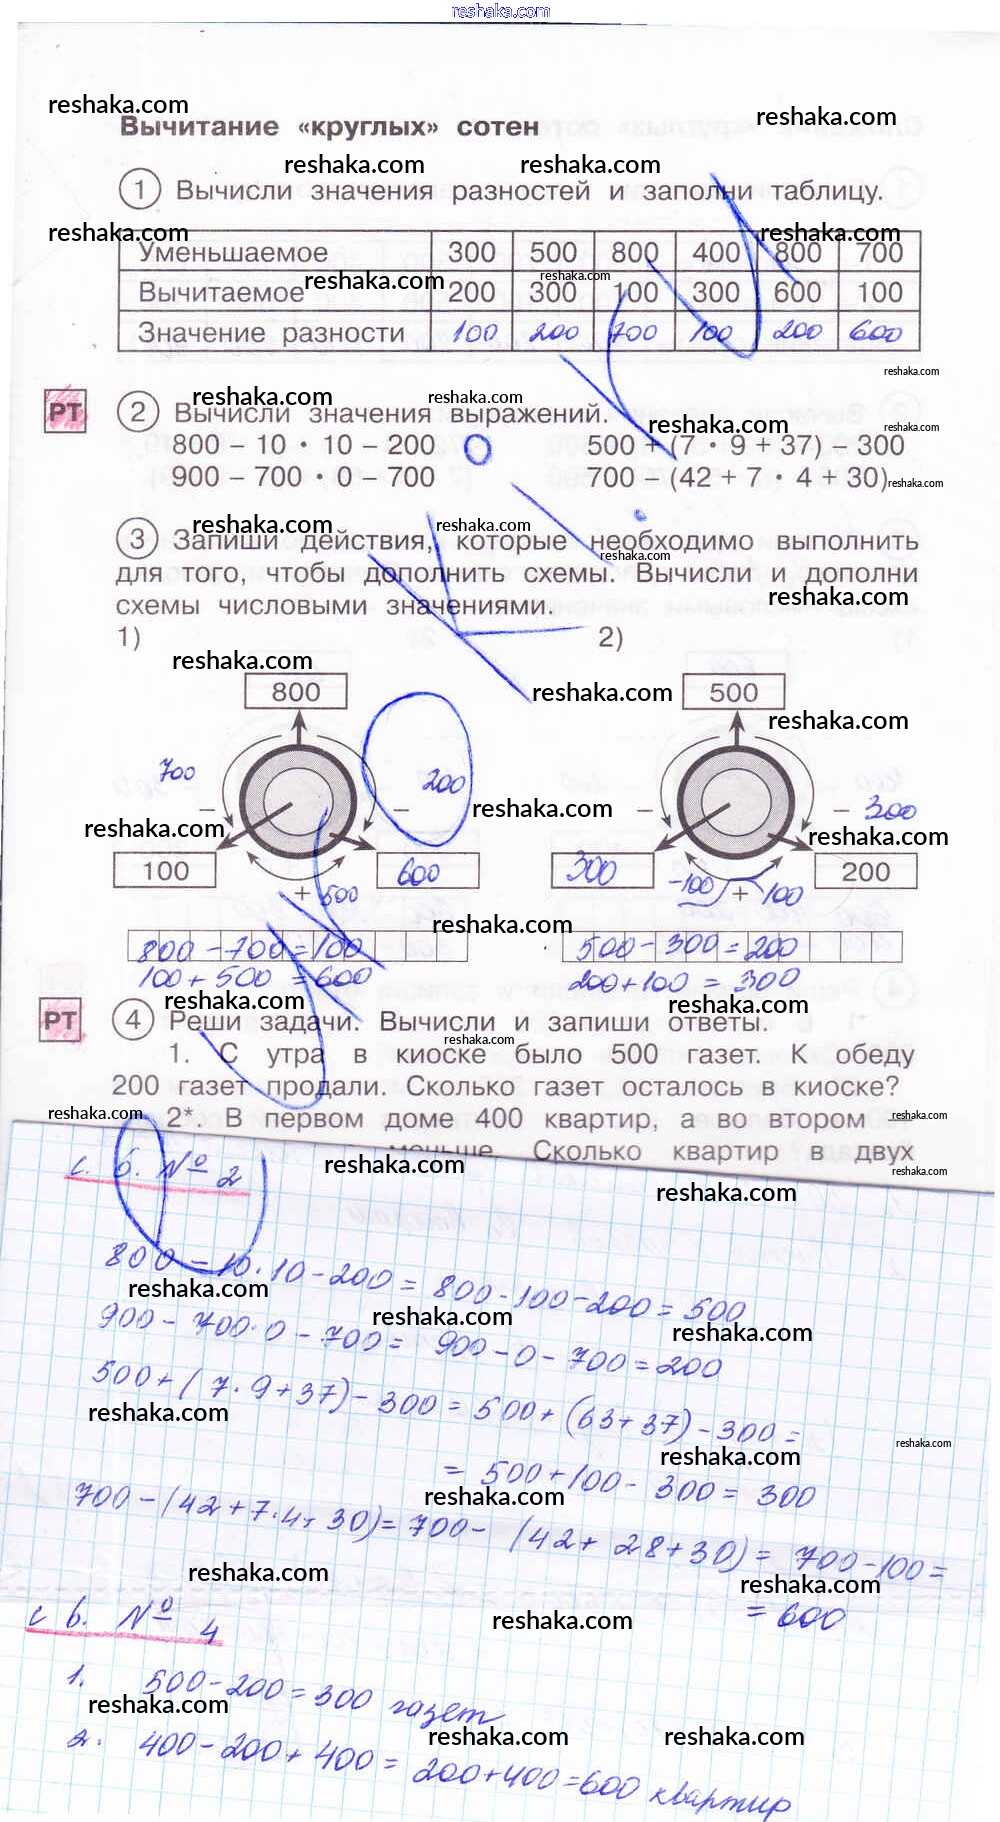 reshaka.com
Вычитание «круглых» сотен
1 Вычисли значения разностей и заполни таблицу.
Уменьшаемое 300 500 800 400 800 700
Вычитаемое 200 300 100 300 600 100
Значение разности 100 200 700 100 200 600
РТ 2 Вычисли значения выражений.
800 – 10 · 10 – 200 500 + (7 · 9 + 37) – 300
900 – 700 · 0 – 700 700 – (42 + 7 · 4 + 30)
3 Запиши действия, которые необходимо выполнить
для того, чтобы дополнить схемы. Вычисли и дополни
схемы числовыми значениями.
1) 2)
800 500
700 200
– – – 300
100 600 300 200
+ 500 -100 + 100
800 - 700 = 100 500 - 300 = 200
100 + 500 = 600 200 + 100 = 300
РТ 4 Реши задачи. Вычисли и запиши ответы.
1. С утра в киоске было 500 газет. К обеду
200 газет продали. Сколько газет осталось в киоске?
2*. В первом доме 400 квартир, а во втором –
меньше. Сколько квартир в двух
с. 6. № 2
800 - 10 · 10 - 200 = 800 - 100 - 200 = 500
900 - 700 · 0 - 700 = 900 - 0 - 700 = 200
500 + (7 · 9 + 37) - 300 = 500 + (63 + 37) - 300 =
= 500 + 100 - 300 = 300
700 - (42 + 7 · 4 + 30) = 700 - (42 + 28 + 30) = 700 - 100 =
= 600
с 6. № 4
1. 500 - 200 = 300 газет
2. 400 - 200 + 400 = 200 + 400 = 600 квартир